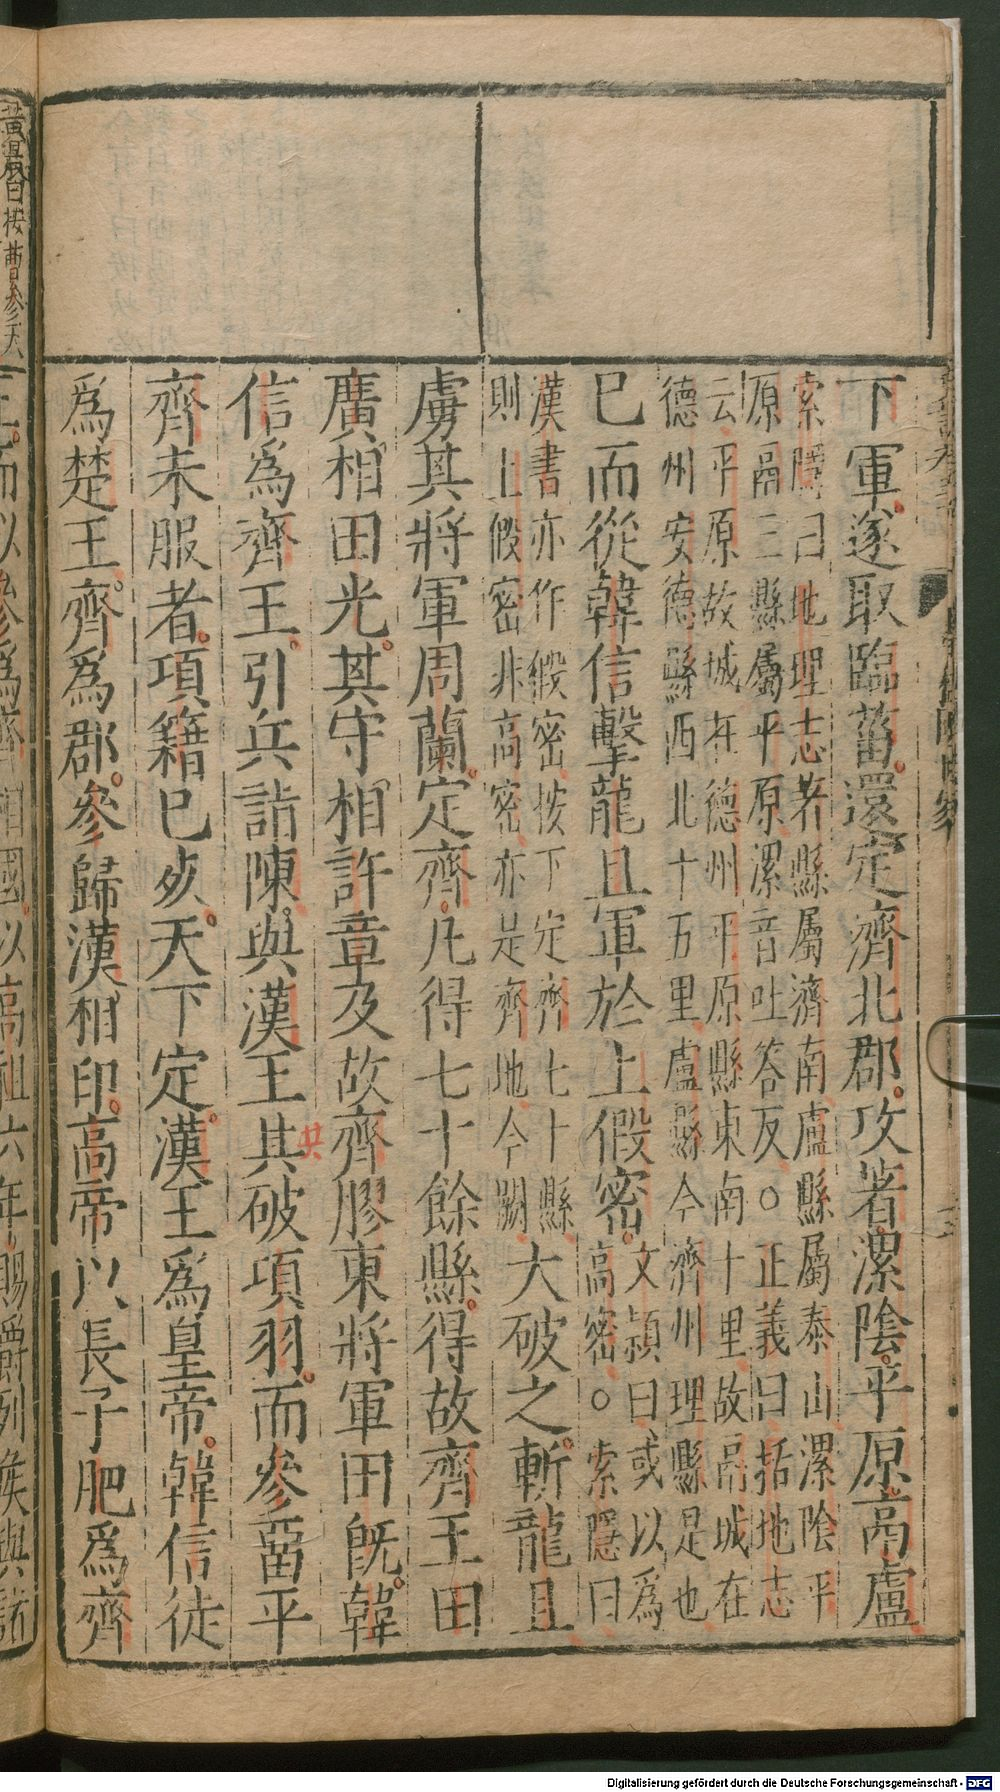 下軍遂取臨菑還定濟北郡攻著漯陰平原鬲盧
索隱曰地理志著縣屬濟南盧縣屬泰山漯陰平
原鬲三縣屬平原漯音吐答反○正義曰括地志
云平原故城在德州平原縣東南十里故鬲城在
德州安德縣西北十五里盧縣今濟州理縣是也
已而從韓信擊龍且軍於上假密
文頴曰或以爲
高密○索隱曰
漢書亦作假密按下定齊七十縣
則上假密非高密亦是齊地今闕
大破之斬龍且
虜其將軍周蘭定齊凡得七十餘縣得故齊王田
廣相田光其守相許章及故齊膠東將軍田旣韓
信爲齊王引兵詣陳與漢王其破項羽而參留平
共
齊未服者項籍已死天下定漢王爲皇帝韓信徒
爲楚王齊爲郡參歸漢相印高帝以長子肥爲齊
王而以參爲齊相國以高祖六年賜爵列侯與諸
Digitalisierung gefördert durch die Deutsche Forschungsgemeinschaft - DFG